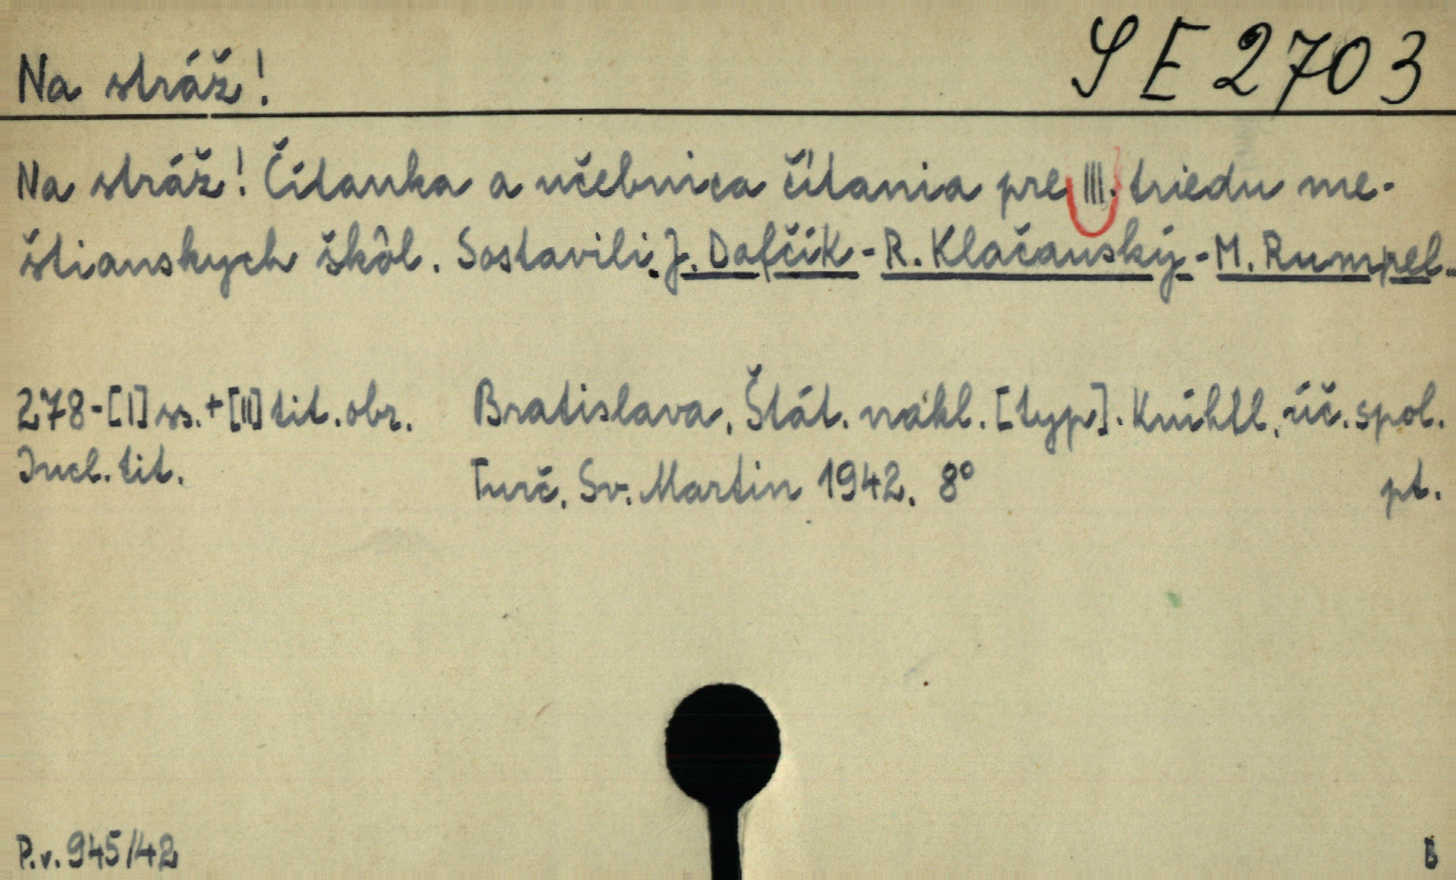 Na stráž!
SE2703
Na stráž! Čítanka a učebnica čítania pre III. triedu me-
štianskych škôl. Sostavili J. Dafčík - R. Klačanský - M. Rumpel.
278-[I] ss. + [II] tit. obr. Bratislava, Štát. nákl. [typ]. Kníhtl. úč. spol.
Incl. tit. Turč. Sv. Martin 1942. 8° pt.
P.v. 945/42 B